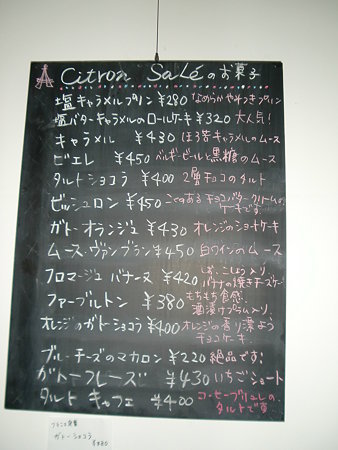 Citron Saléのお菓子
塩キャラメルプリン ¥280 なめらかやわらかプリン
塩バターキャラメルのロールケーキ ¥320 大人気!
キャラメル ¥430 ほろ苦キャラメルのムース
ビエレ ¥450 ベルギービールと黒糖のムース
タルトショコラ ¥400 2層チョコのタルト
ビッシュロン ¥450 こくのあるチョコバタークリームの
ケーキです
ガトーオランジュ ¥430 オレンジのショートケーキ
ムース・ヴァンブラン ¥450 白ワインのムース
フロマージュバナーヌ ¥420 しお、こしょう入り
バナナの焼きチーズケーキ
ファーブルトン ¥380 もちもち食感、
酒漬けプラム入り
オレンジのガトーショコラ ¥400 オレンジの香り漂よう
チョコケーキ
ブルーチーズのマカロン ¥220 絶品です!
ガトーフレーズ ¥430 いちごショート
タルトキャフェ ¥400 コーヒーブリュレの
タルトです
ガトーショコラ